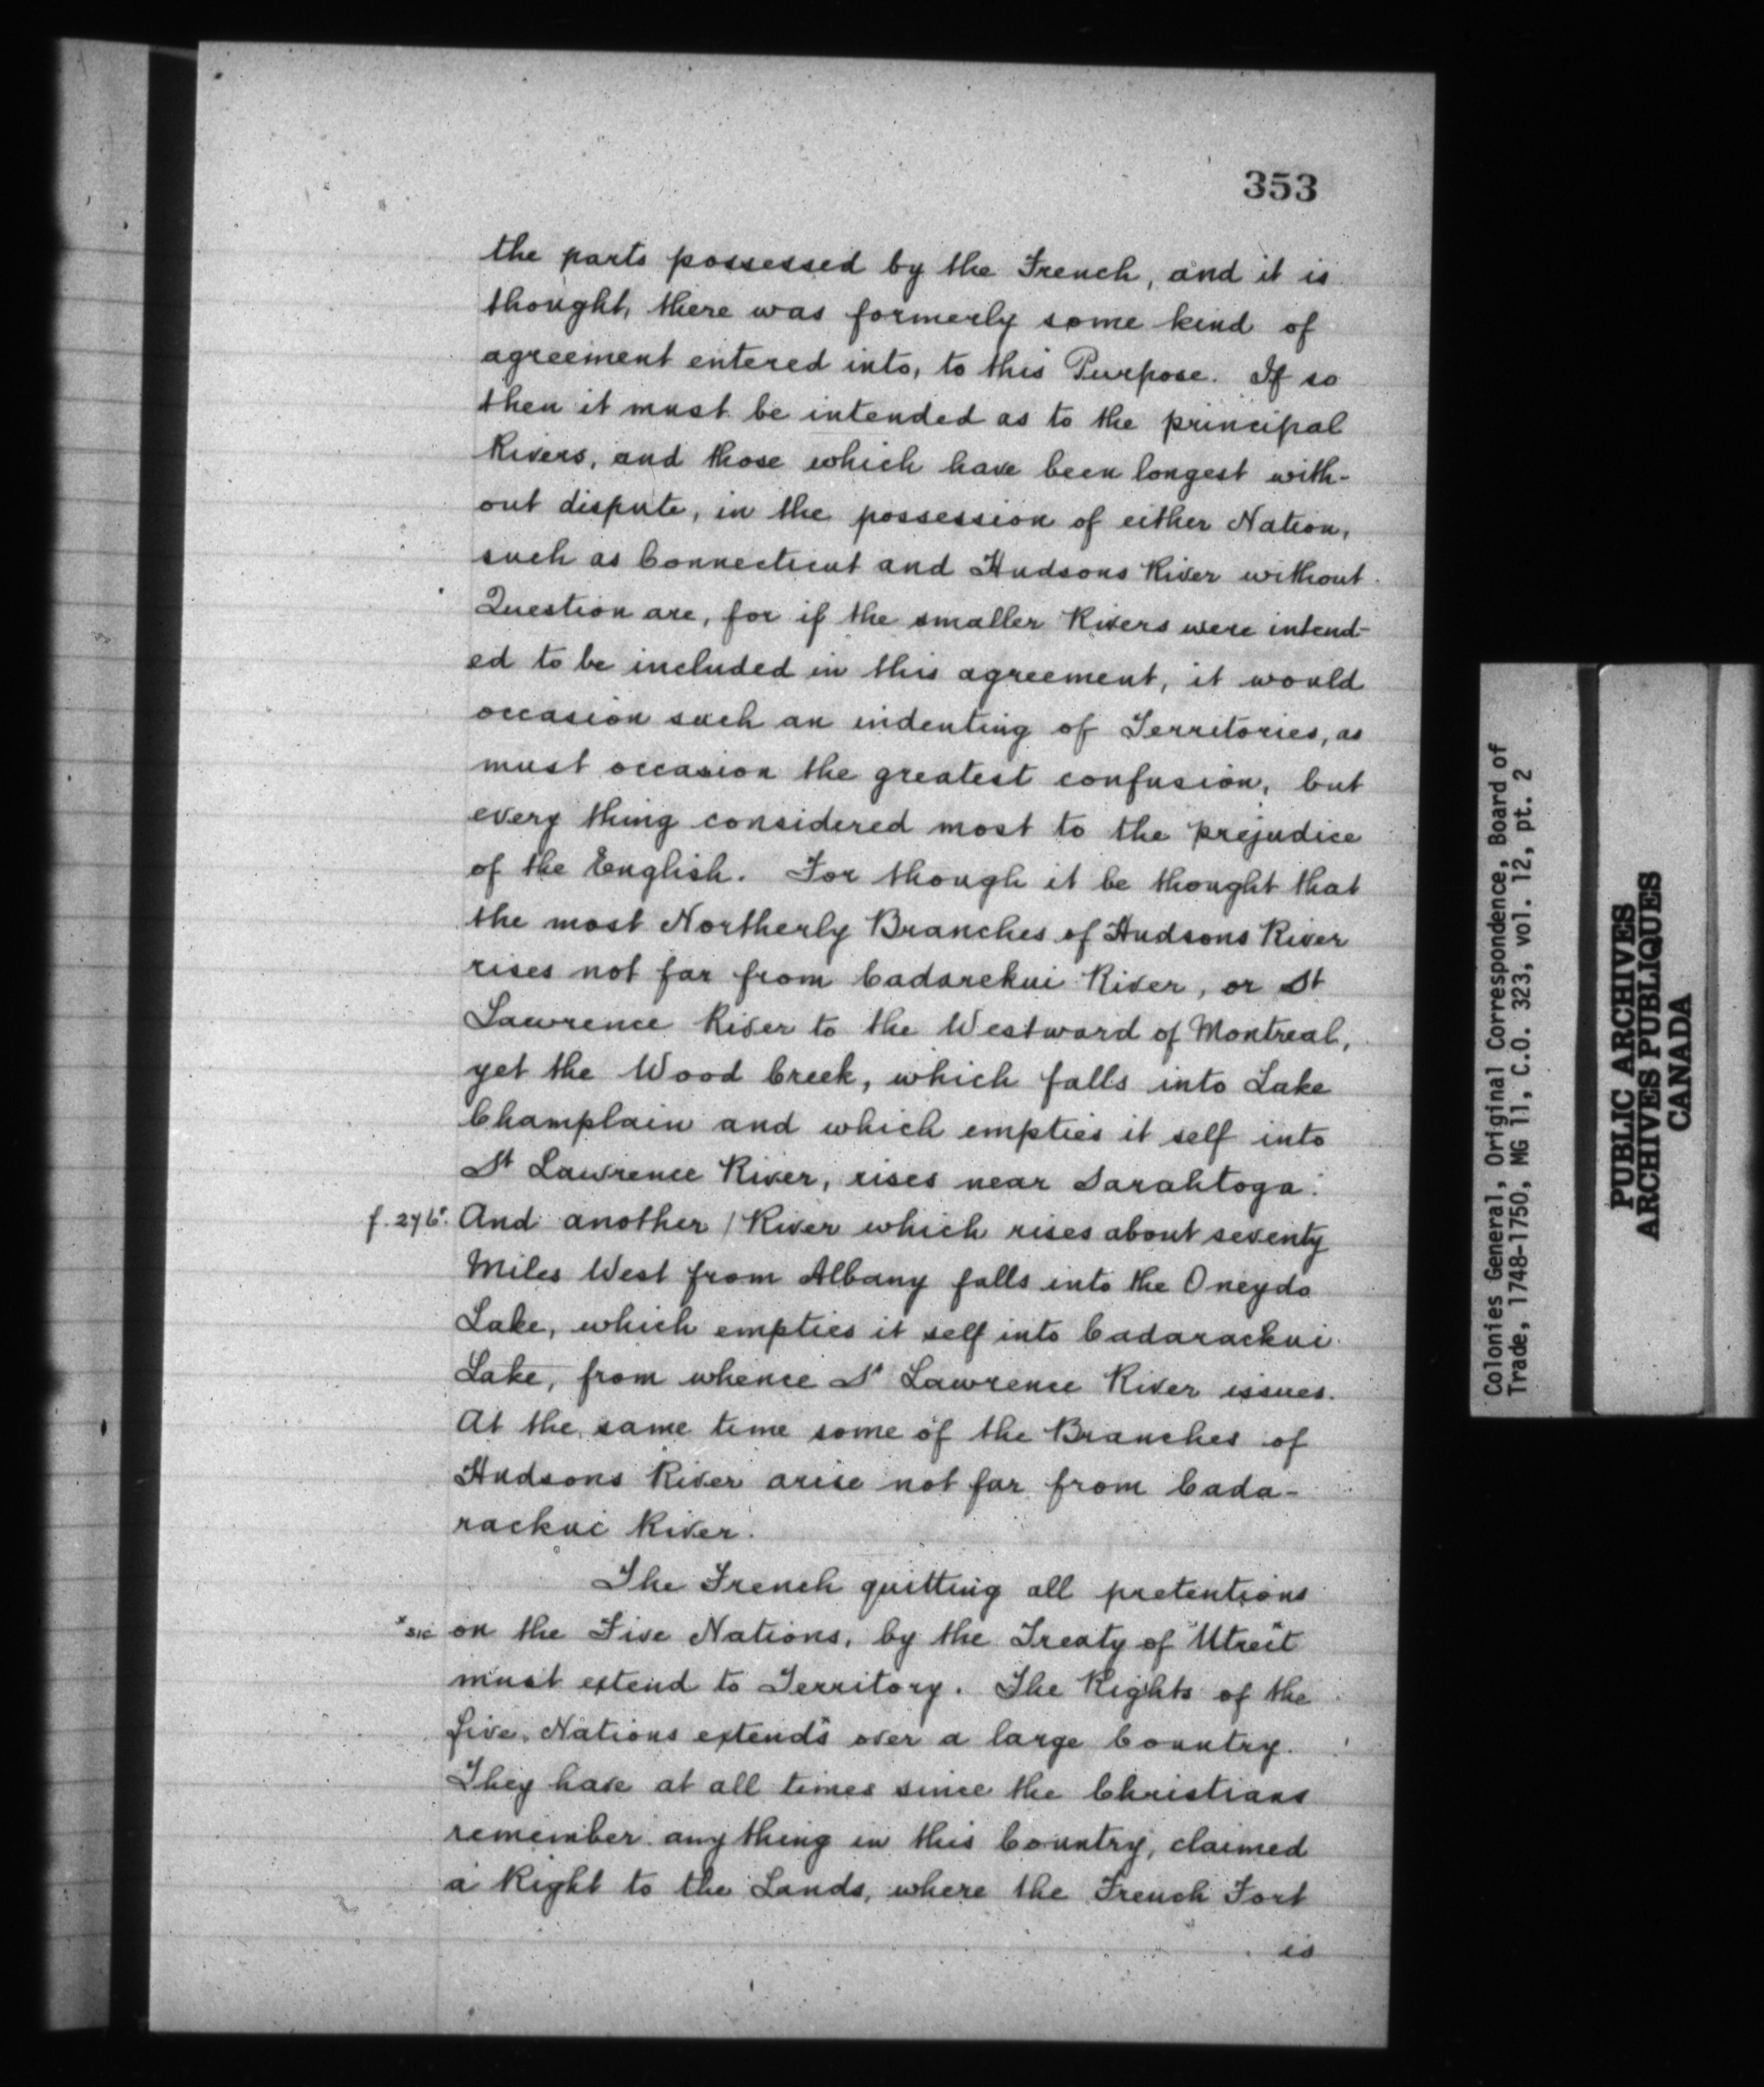 353
the parts possessed by the French, and it is
thought, there was formerly some kind of
agreement entered into, to this Purpose. If so
then it must be intended as to the principal
Rivers, and those which have been longest with-
out dispute, in the possession of either Nation,
such as Connecticut and Hudsons River without
Question are, for if the smaller Rivers were intend-
ed to be included in this agreement, it would
occasion such an indenting of Territories, as
must occasion the greatest confusion, but
every thing considered most to the prejudice
of the English. For though it be thought that
the most Northerly Branches of Hudsons River
rises not far from Cadarckui River, or St
Lawrence River to the Westward of Montreal,
yet the Wood Creek, which falls into Lake
Champlain and which empties it self into
St Lawrence River, rises near Sarahtoga.
f. 276. And another / River which rises about seventy
Miles West from Albany falls into the Oneydo
Lake, which empties it self into Cadarackui
Lake, from whence St Lawrence River issues.
At the same time some of the Branches of
Hudsons River arise not far from Cada-
rackui River.
The French quitting all pretentions
x sic on the Five Nations, by the Treaty of Utreit x
must extend to Territory. The Rights of the
five Nations extends over a large Country.
They have at all times since the Christians
remember any thing in this Country, claimed
a Right to the Lands, where the French Fort
is
Colonies General, Original Correspondence, Board of
Trade, 1748-1750, MG 11, C.O. 323, vol. 12, pt. 2
PUBLIC ARCHIVES
ARCHIVES PUBLIQUES
CANADA